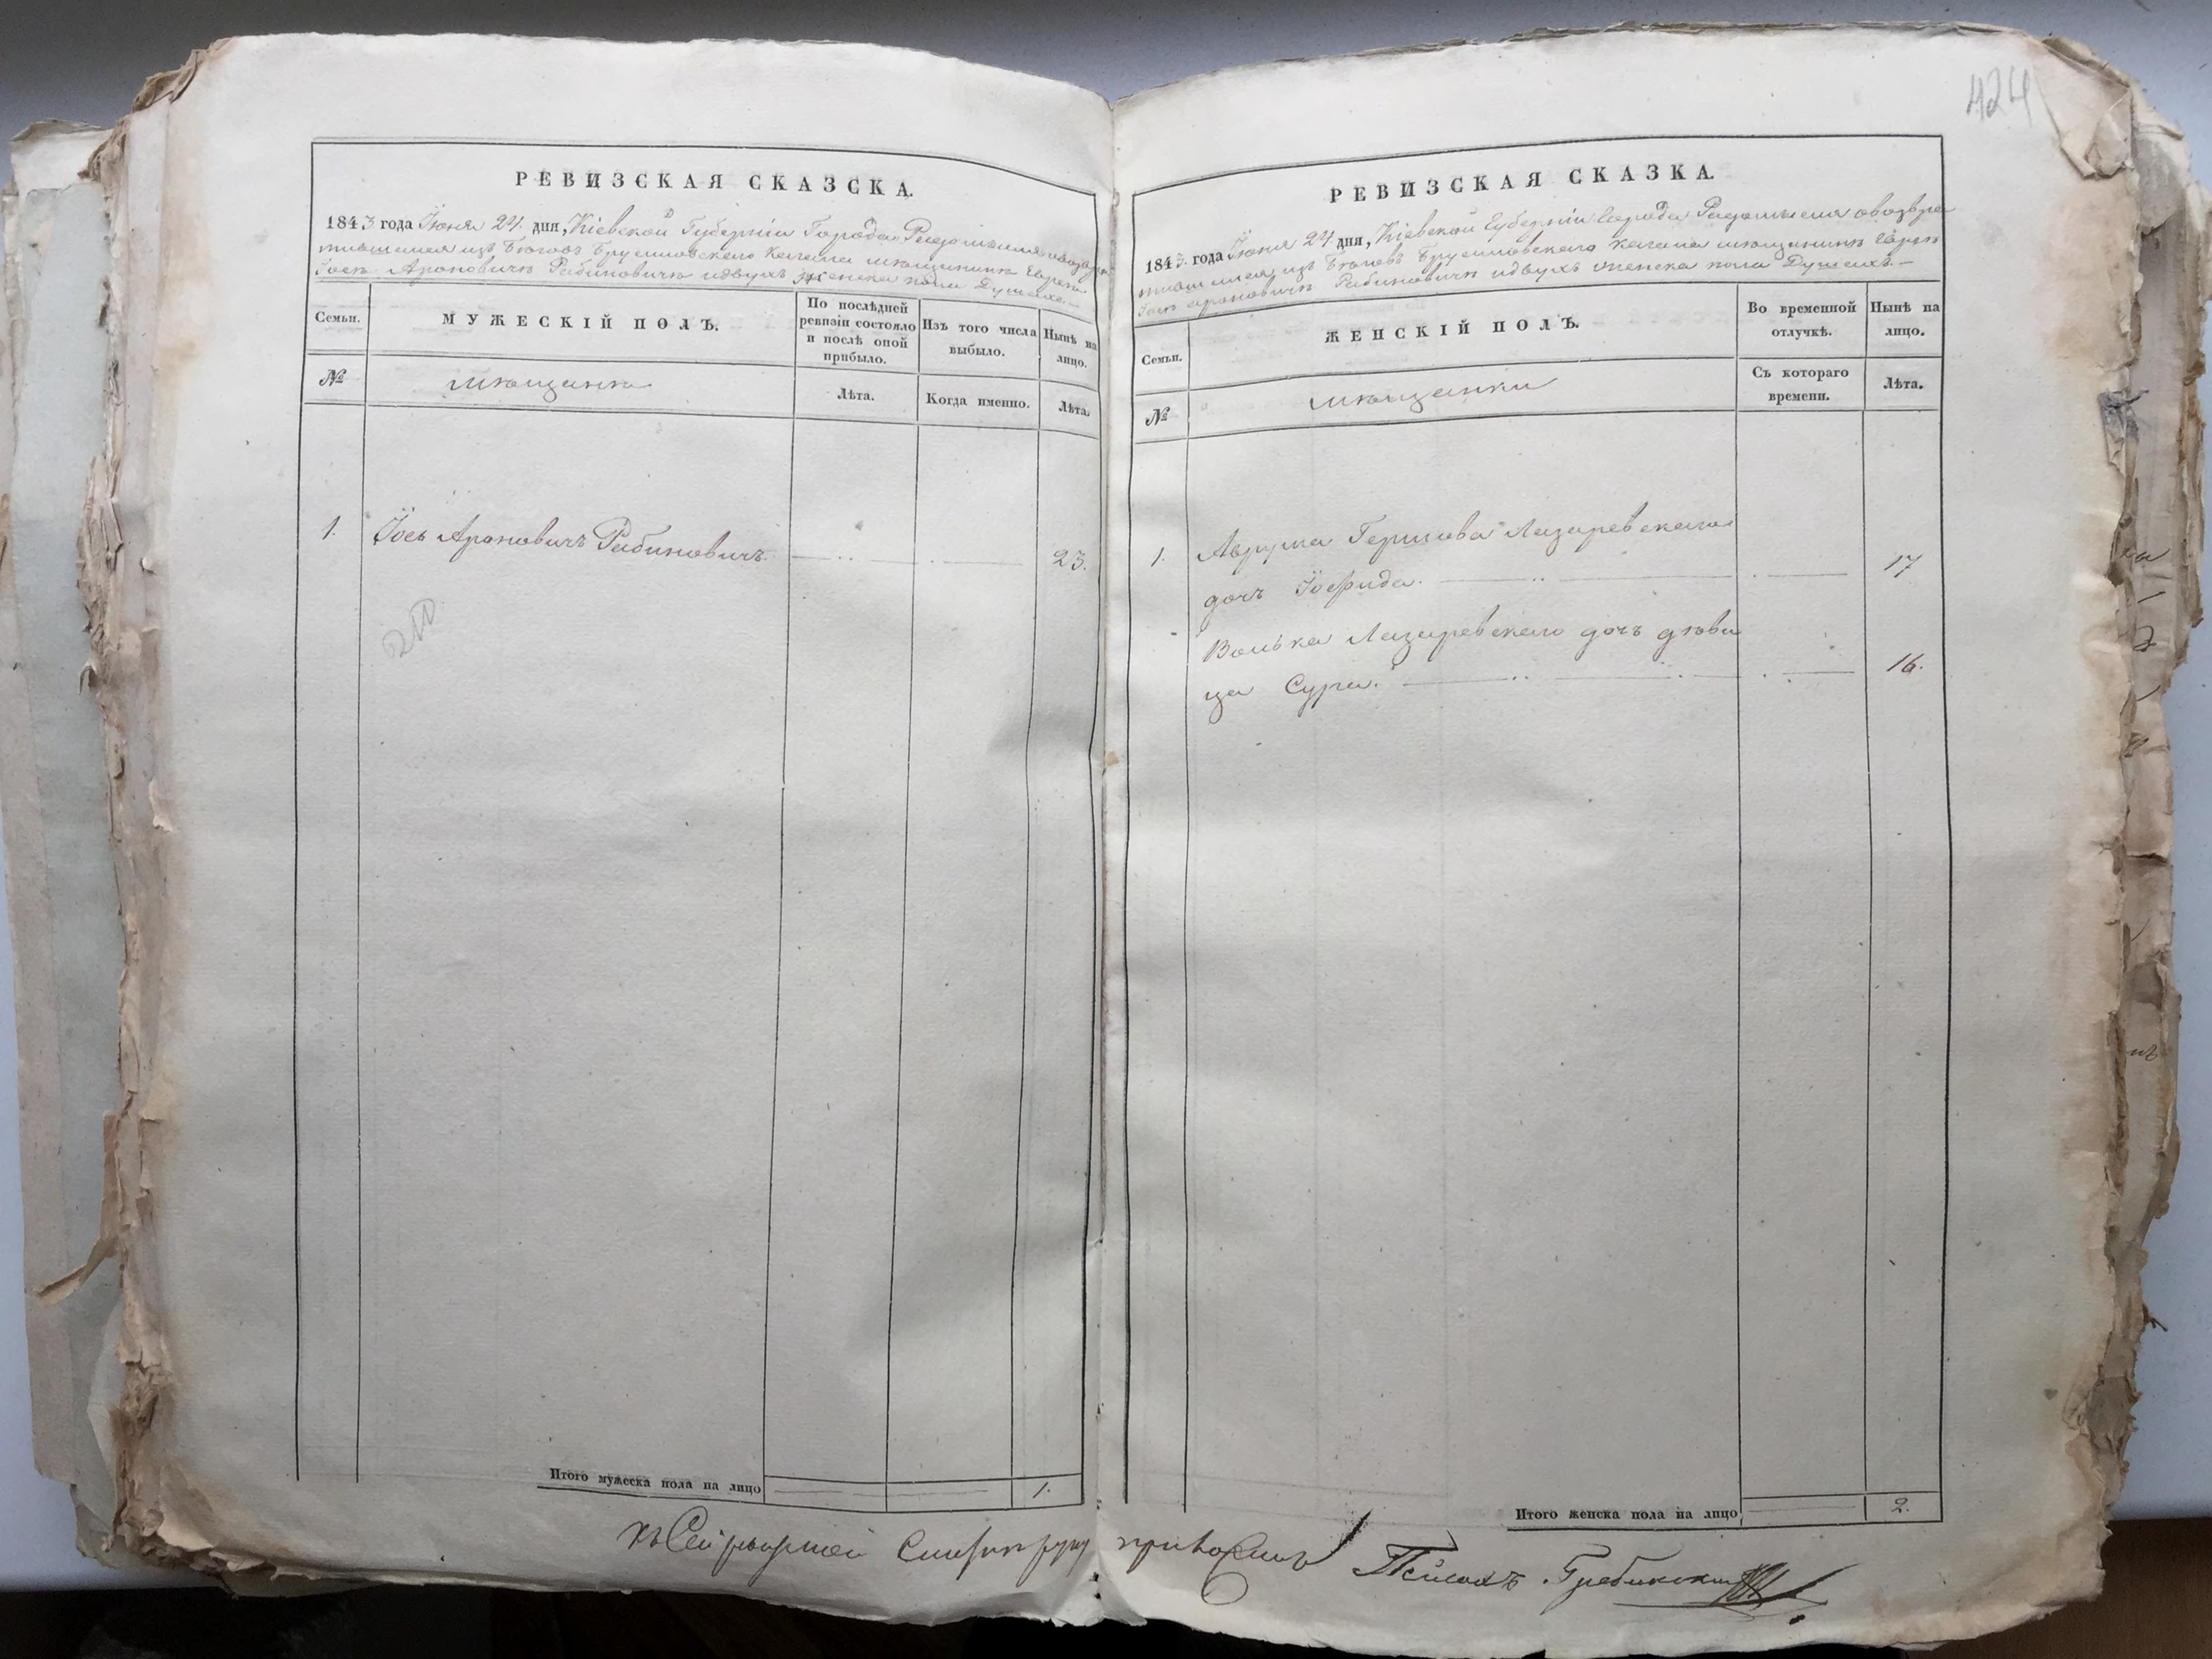 424
РЕВИЗСКАЯ СКАЗСКА.
1843 года Іюня 24. дня, Кіевской Губерніи Города Радомысля о возвра
тившемся изъ Бѣговъ Брусиловскаго Кагала мѣщанинѣ Евреѣ
Іосѣ Ароновичѣ Рабиновичѣ и двухъ женска пола Душахъ
Семьи.
МУЖЕСКІЙ ПОЛЪ.
По послѣдней ревизіи состояло и послѣ оной прибыло.
Изъ того числа выбыло.
Нынѣ на лицо.
№
мѣщанинъ
Лѣта.
Когда именно.
Лѣта.
1. Іось Ароновичъ Рабиновичъ 23.
Итого мужеска пола на лицо 1.
РЕВИЗСКАЯ СКАЗКА.
1843. года Іюня 24 дня, Кіевской Губерніи Города Радомысля о возвра
тившемся изъ Бѣговъ Брусиловскаго Кагала мѣщанинѣ Евреѣ
Іосѣ Ароновичѣ Рабиновичѣ и двухъ женска пола Душахъ.—
Семьи.
ЖЕНСКІЙ ПОЛЪ.
Во временной отлучкѣ.
Нынѣ на лицо.
№
мѣщанки
Съ котораго времени.
Лѣта.
1. Аврума Гершова Лазаревскаго
дочь Іосфида. 17
Волька Лазаревскаго дочь дѣви
ца Сура. 16.
Итого женска пола на лицо 2.
къ Сей ревизской Сказки руку приложилъ Пейсахъ